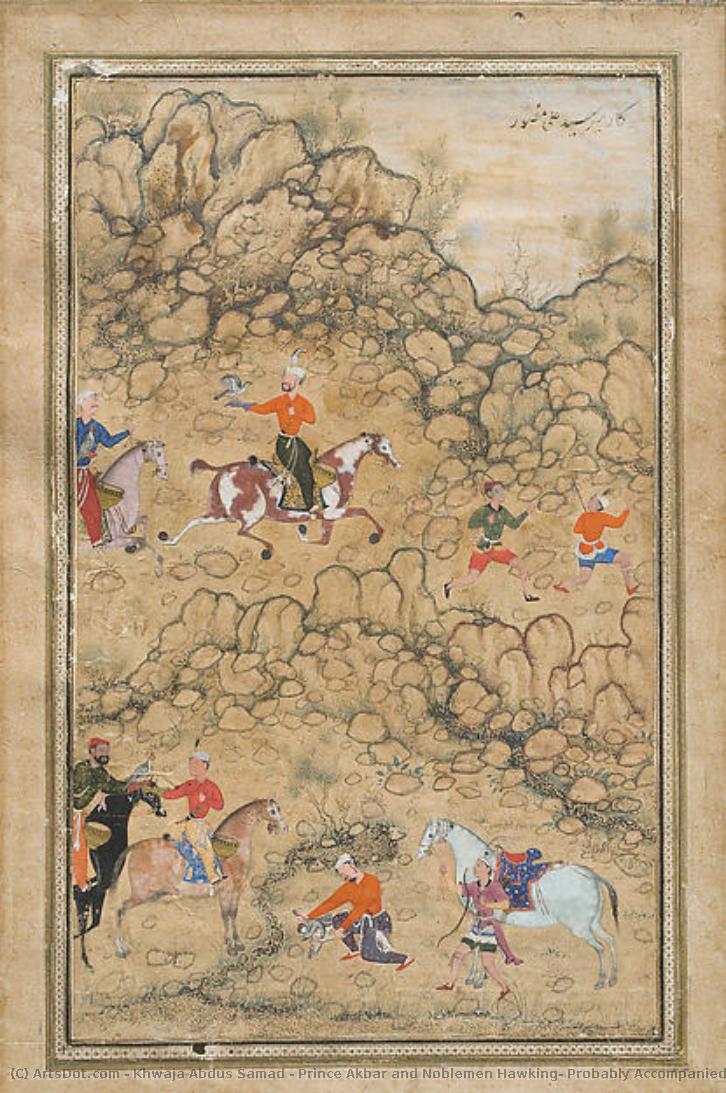 کار میر سید علی مصور
(C) ArtsDot.com - Khwaja Abdus Samad - Prince Akbar and Noblemen Hawking- Probably Accompanied